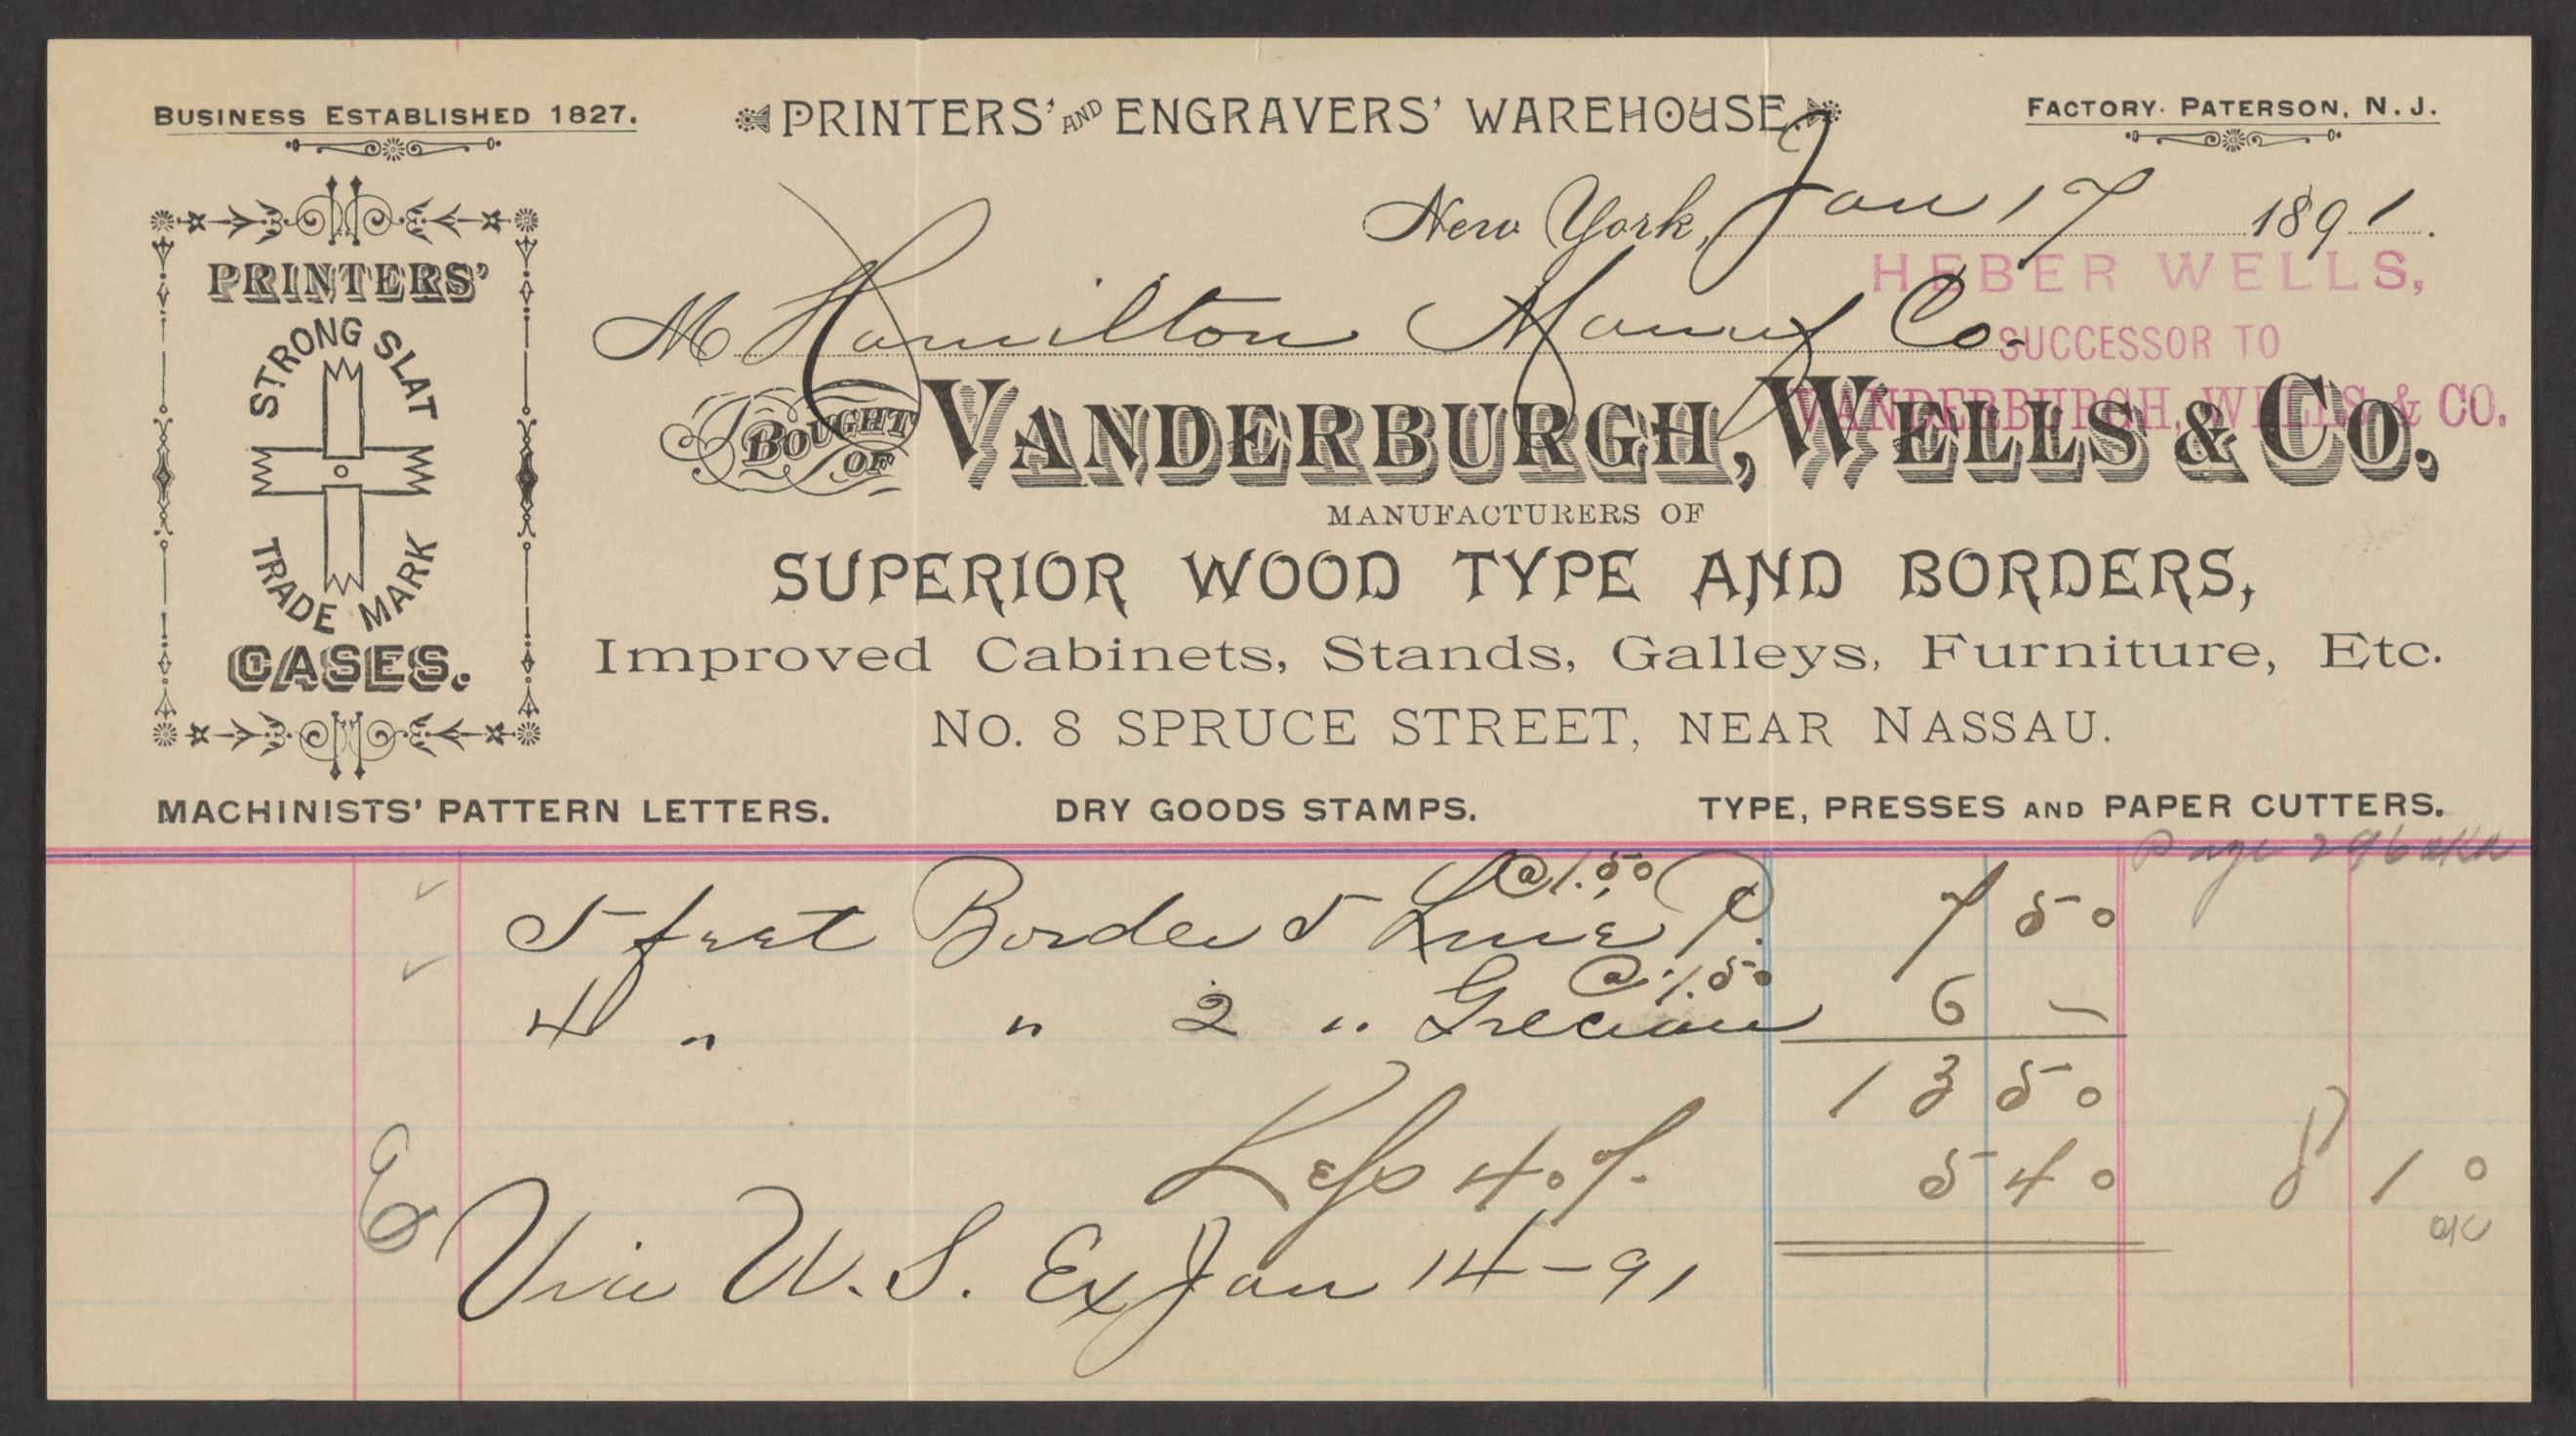 BUSINESS ESTABLISHED 1827.
PRINTERS' AND ENGRAVERS' WAREHOUSE.
FACTORY. PATERSON, N. J.
New York, Jan 17 1891.
HEBER WELLS,
SUCCESSOR TO
VANDERBURGH, WELLS & CO.
M Hamilton Manuf Co.
BOUGHT OF VANDERBURGH, WELLS & CO.
MANUFACTURERS OF
SUPERIOR WOOD TYPE AND BORDERS,
Improved Cabinets, Stands, Galleys, Furniture, Etc.
NO. 8 SPRUCE STREET, NEAR NASSAU.
PRINTERS'
STRONG SLAT
TRADE MARK
CASES.
MACHINISTS' PATTERN LETTERS.
DRY GOODS STAMPS.
TYPE, PRESSES AND PAPER CUTTERS.
Page 296
@ 1.50
5 feet Border 5 Line P. 7 50
@ 1.50
4 " " 2 " Grecian 6 —
13 50
Less 40% 5 40 8 10
OK
Via U. S. Ex Jan 14-91